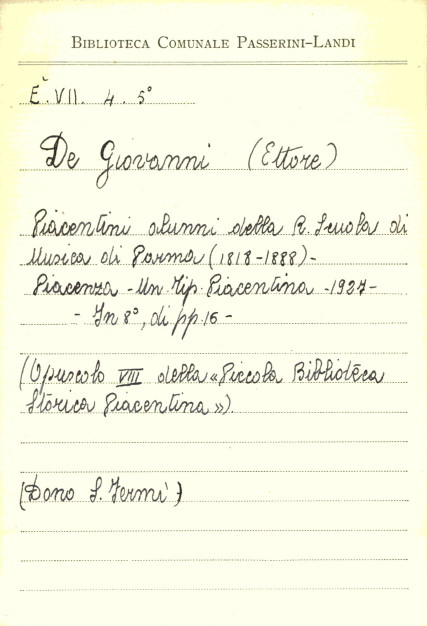 BIBLIOTECA COMUNALE PASSERINI-LANDI
E. VII. 4. 5°
De Giovanni (Ettore)
Piacentini alunni della R. Scuola di
Musica di Parma (1818-1888)-
Piacenza - Un. Tip. Piacentina - 1927-
- In 8°, di pp. 16 -
(Opuscolo VIII della «Piccola Biblioteca
Storica Piacentina»).
(Dono S. Fermi)